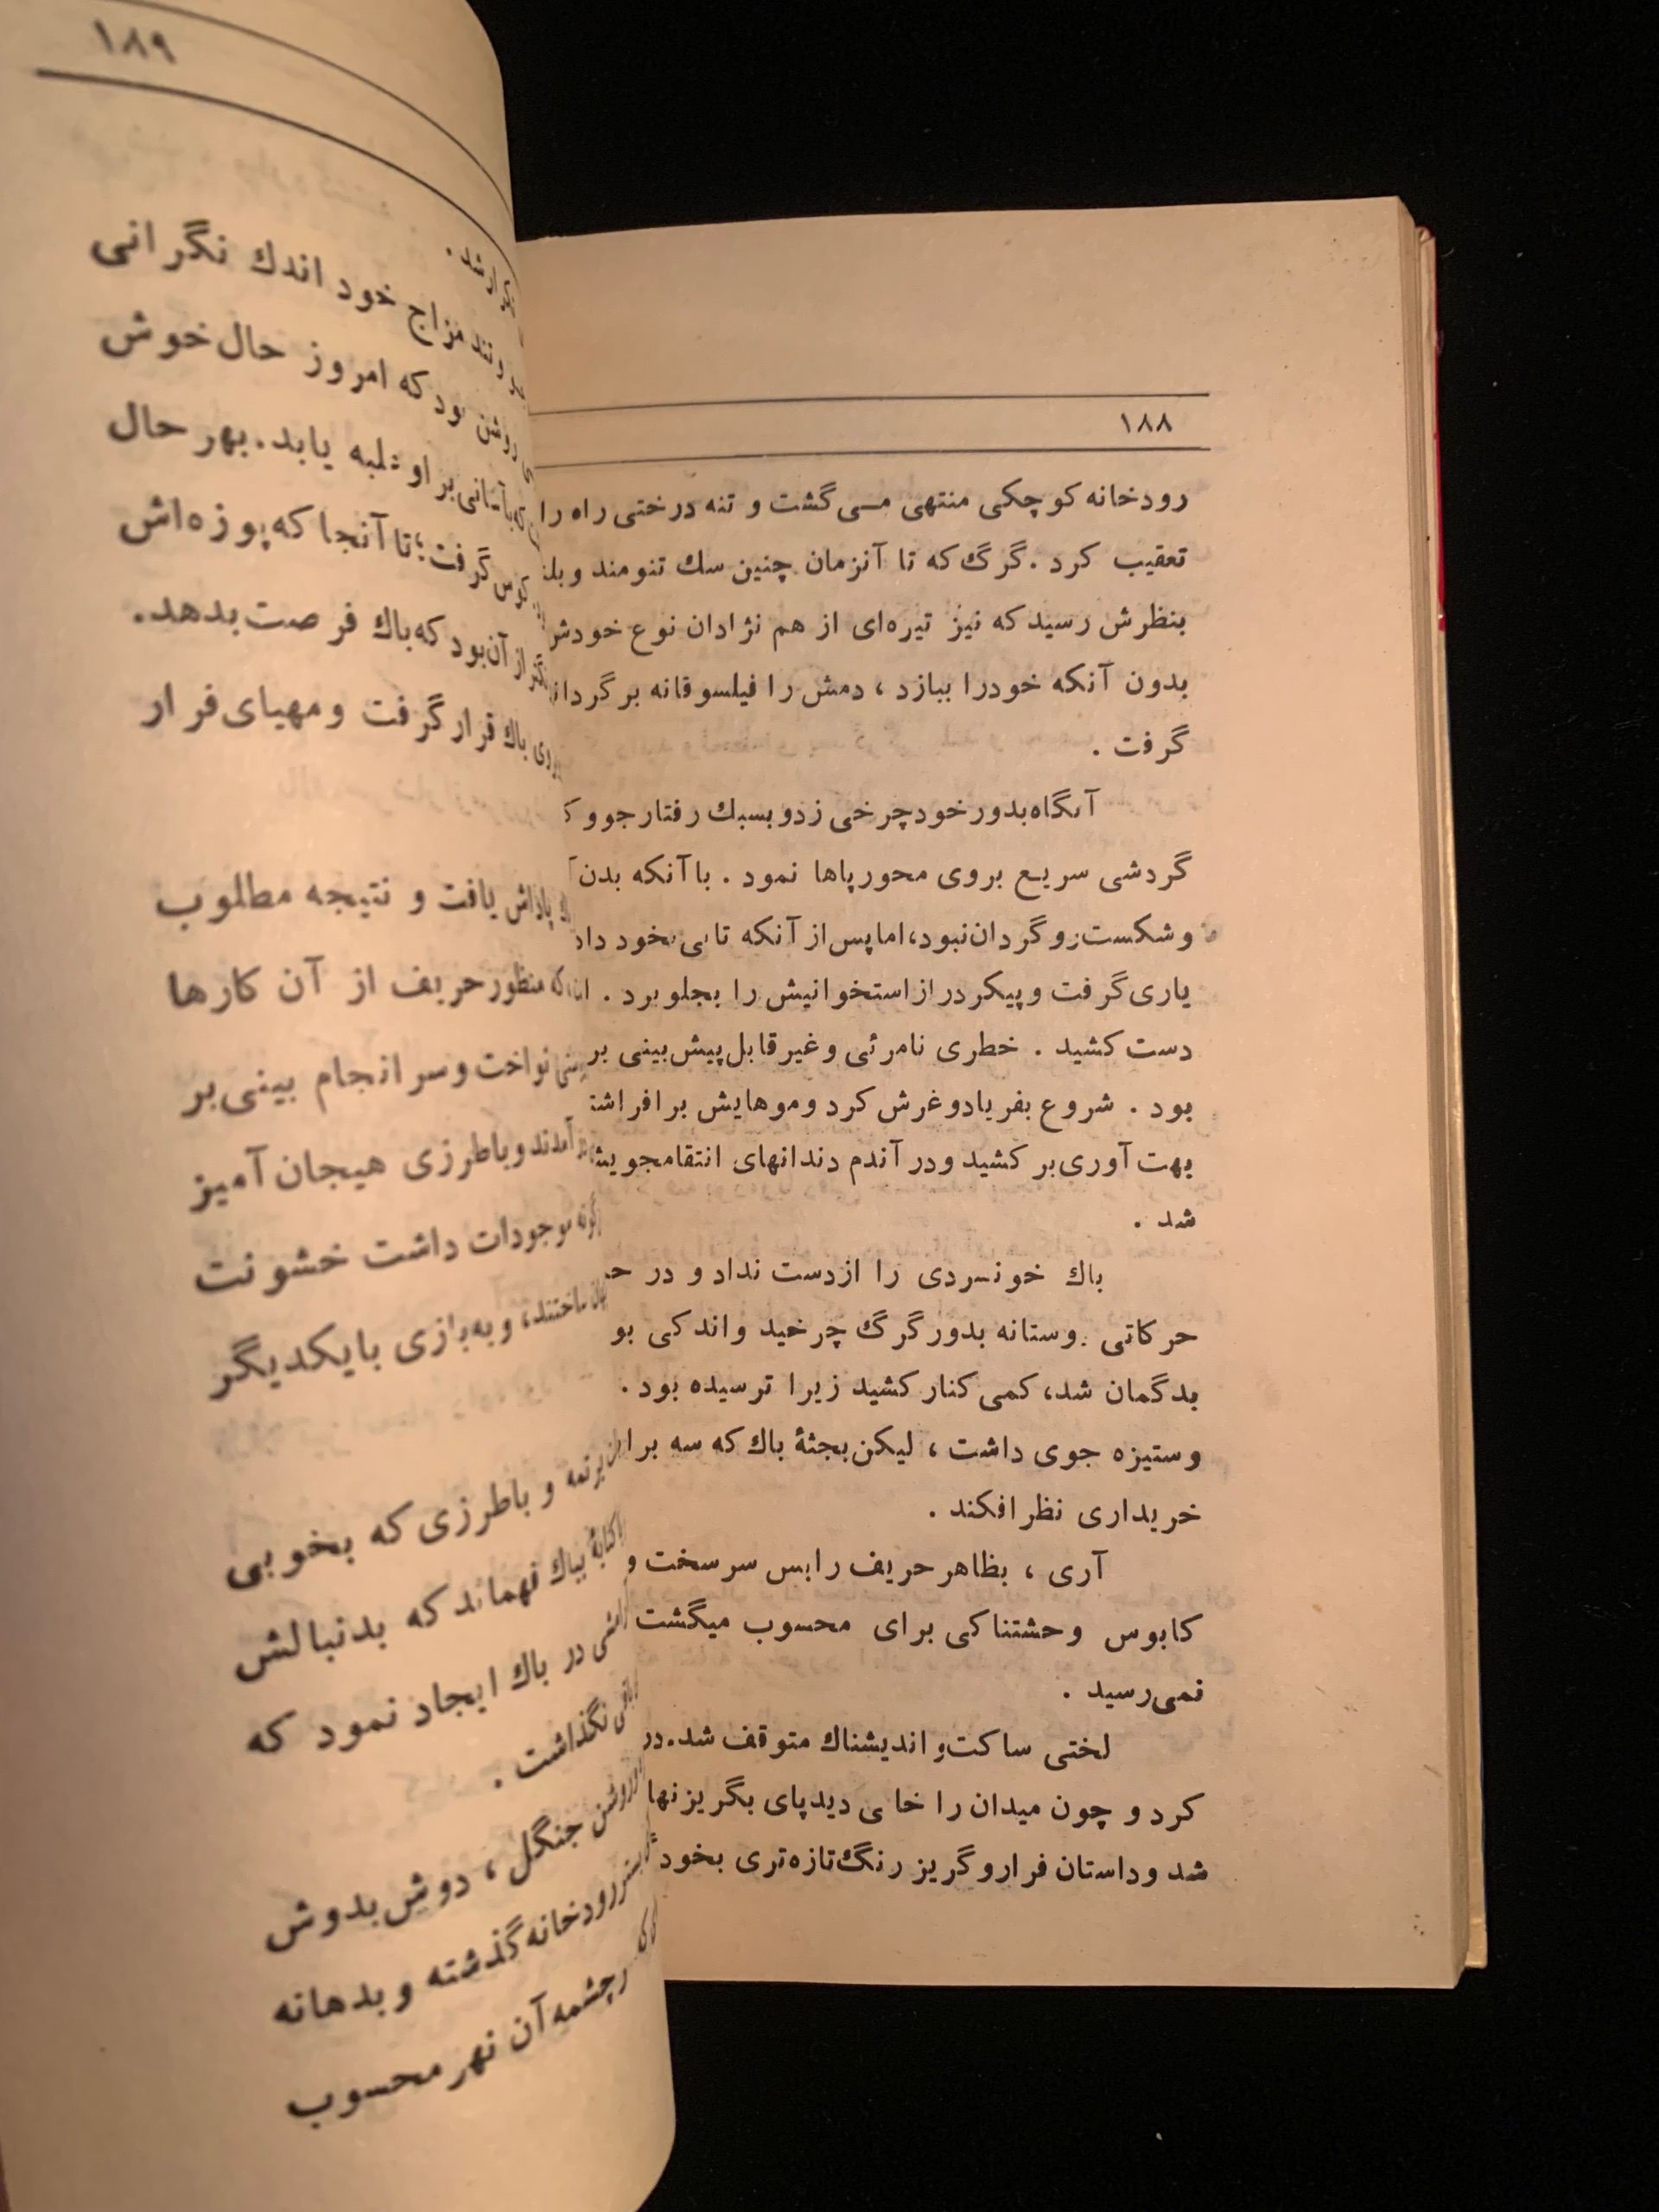 ۱۸۸
رودخانه کوچکی منتهی مــی گشت و تنه درختی راه را
تعقیب کرد . گرگ که تا آنزمان چنین سك تنومند و
بنظرش رسید که نیز تیره‌ای از هم نژادان نوع خودش
بدون آنکه خودرا ببازد ، دمش را فیلسوفانه
گرفت .
آنگاه بدور خود چرخی زد و بسبك رفتار جو و
گردشی سریـع بروی محور پاها نمود . با آنکه بدن
و شکست رو گردان نبود، اما پس از آنکه تابی بخود داد
یاری گرفت و پیکر دراز استخوانیش را بجلو برد .
دست کشید . خطری نامرئی و غیر قابل پیش بینی
بود . شروع بفریاد و غرش کرد و موهایش
بهت آوری بر کشید و در آندم دندانهای
شد .
باك خونسردی را ازدست نداد و در
حرکاتی دوستانه بدور گرگ چرخید و اندکی
بدگمان شد، کمی کنار کشید زیرا ترسیده بود .
و ستیزه جوی داشت ، لیکن بجثهٔ باك که سه
خریداری نظر افکند .
آری ، بظاهر حریف را بس سرسخت و
کابوس وحشتناکی برای محسوب میگشت
نمی‌رسید .
لختی ساکت و اندیشناك متوقف شد. در
کرد و چون میدان را خالی دید پای بگریز
شد و داستان فرار و گریز رنگ تازه‌تری بخود
۱۸۹
شد .
و تند مزاج خود اندك نگرانی
روشن بود که امروز حال خوش
بآسانی بر او غلبه یابد. بهر حال
گرفت؛ تا آنجا که پوزه‌اش
از آن بود که باك فرصت بدهد.
روی باك قرار گرفت و مهیای فرار
پاداش یافت و نتیجه مطلوب
که منظور حریف از آن کارها
نواخت و سرانجام بینی بر
آمدند و باطرزی هیجان آمیز
موجودات داشت خشونت
ساختند، و به بازی بایکدیگر
و باطرزی که بخوبی
بباك فهماند که بدنبالش
در باك ایجاد نمود که
باقی نگذاشت .
روشن جنگل ، دوش بدوش
رودخانه گذشته و بدهانه
آن نهر محسوب